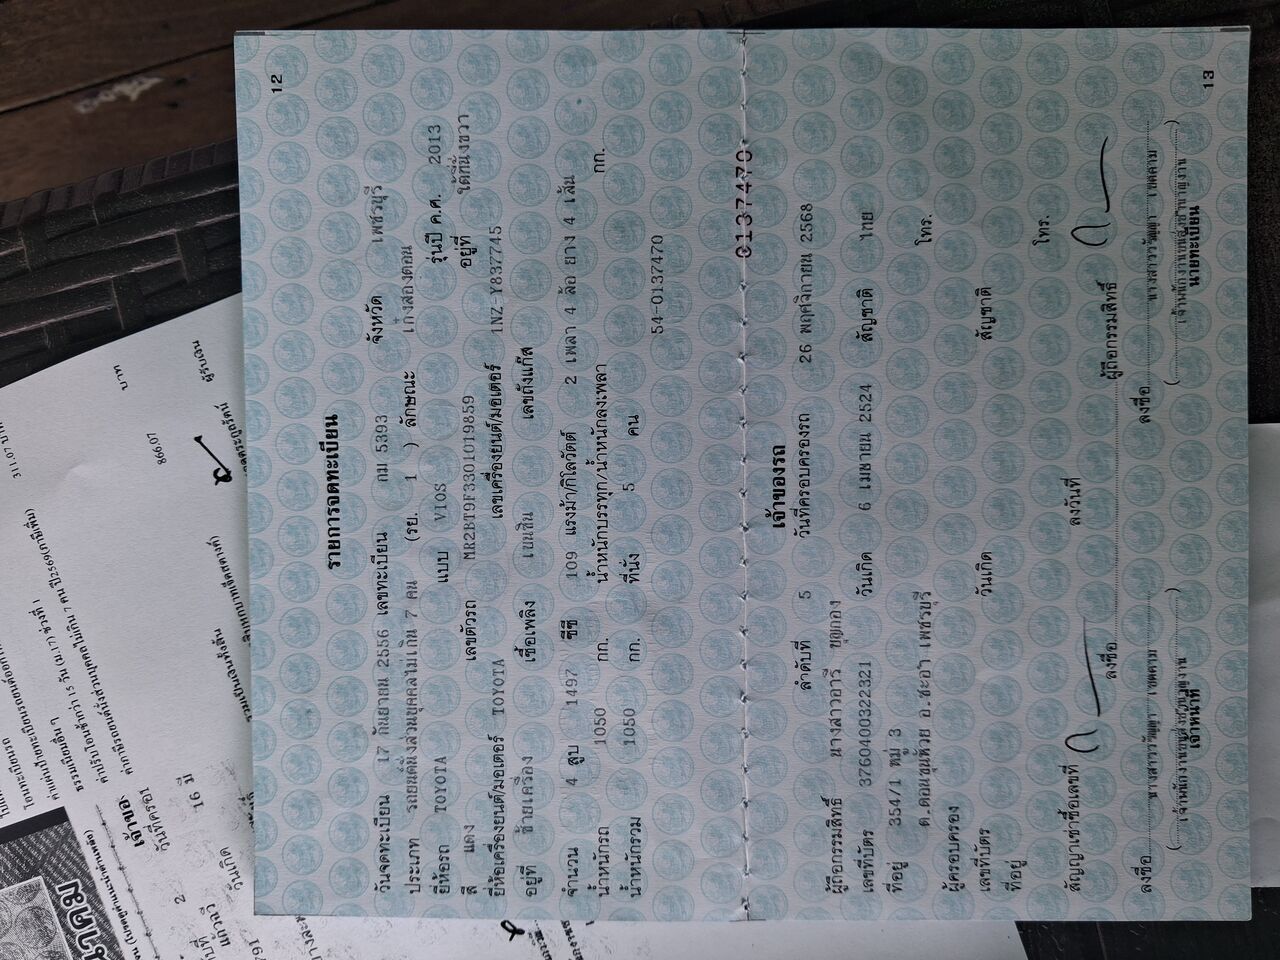 12
รายการจดทะเบียน
วันจดทะเบียน 17 กันยายน 2556 เลขทะเบียน กม 5393 จังหวัด เพชรบุรี
ประเภท รถยนต์นั่งส่วนบุคคลไม่เกิน 7 คน (รย. 1 ) ลักษณะ เก๋งสองตอน
ยี่ห้อรถ TOYOTA แบบ VIOS รุ่นปี ค.ศ. 2013
สี แดง เลขตัวรถ MR2BT9F3301019859 อยู่ที่ ใต้ที่นั่งขวา
ยี่ห้อเครื่องยนต์/มอเตอร์ TOYOTA เลขเครื่องยนต์/มอเตอร์ 1NZ-Y837745
อยู่ที่ ซ้ายเครื่อง เชื้อเพลิง เบนซิน เลขถังแก๊ส
จำนวน 4 สูบ 1497 ซีซี 109 แรงม้า/กิโลวัตต์ 2 เพลา 4 ล้อ ยาง 4 เส้น
น้ำหนักรถ 1050 กก. น้ำหนักบรรทุก/น้ำหนักลงเพลา กก.
น้ำหนักรวม 1050 กก. ที่นั่ง 5 คน
54-0137470
0137470
เจ้าของรถ
ลำดับที่ 5 วันที่ครอบครองรถ 26 พฤศจิกายน 2568
ผู้ถือกรรมสิทธิ์ นางสาวอารี บุญกอง
เลขที่บัตร 3760400322321 วันเกิด 6 เมษายน 2524 สัญชาติ ไทย
ที่อยู่ 354/1 หมู่ 3
ต.ดอนขุนห้วย อ.ชะอำ เพชรบุรี โทร.
ผู้ครอบครอง
เลขที่บัตร วันเกิด สัญชาติ
ที่อยู่ โทร.
สัญญาเช่าซื้อเลขที่ ลงวันที่
ลงชื่อ ผู้ถือกรรมสิทธิ์
ลงชื่อ นางสาววรัญญา เขตคาม ลงชื่อ นางสาววรัญญา เขตคาม
(เจ้าพนักงานขนส่งชำนาญงาน) (เจ้าพนักงานขนส่งชำนาญงาน)
เจ้าหน้าที่ นายทะเบียน
13
311.07 บาท
866.07 บาท
ผู้รับเงิน
ธรรมเนียมอื่น ๆ
16 มี
เจ้าของ
วันที่ครอบ
วันเกิด
791